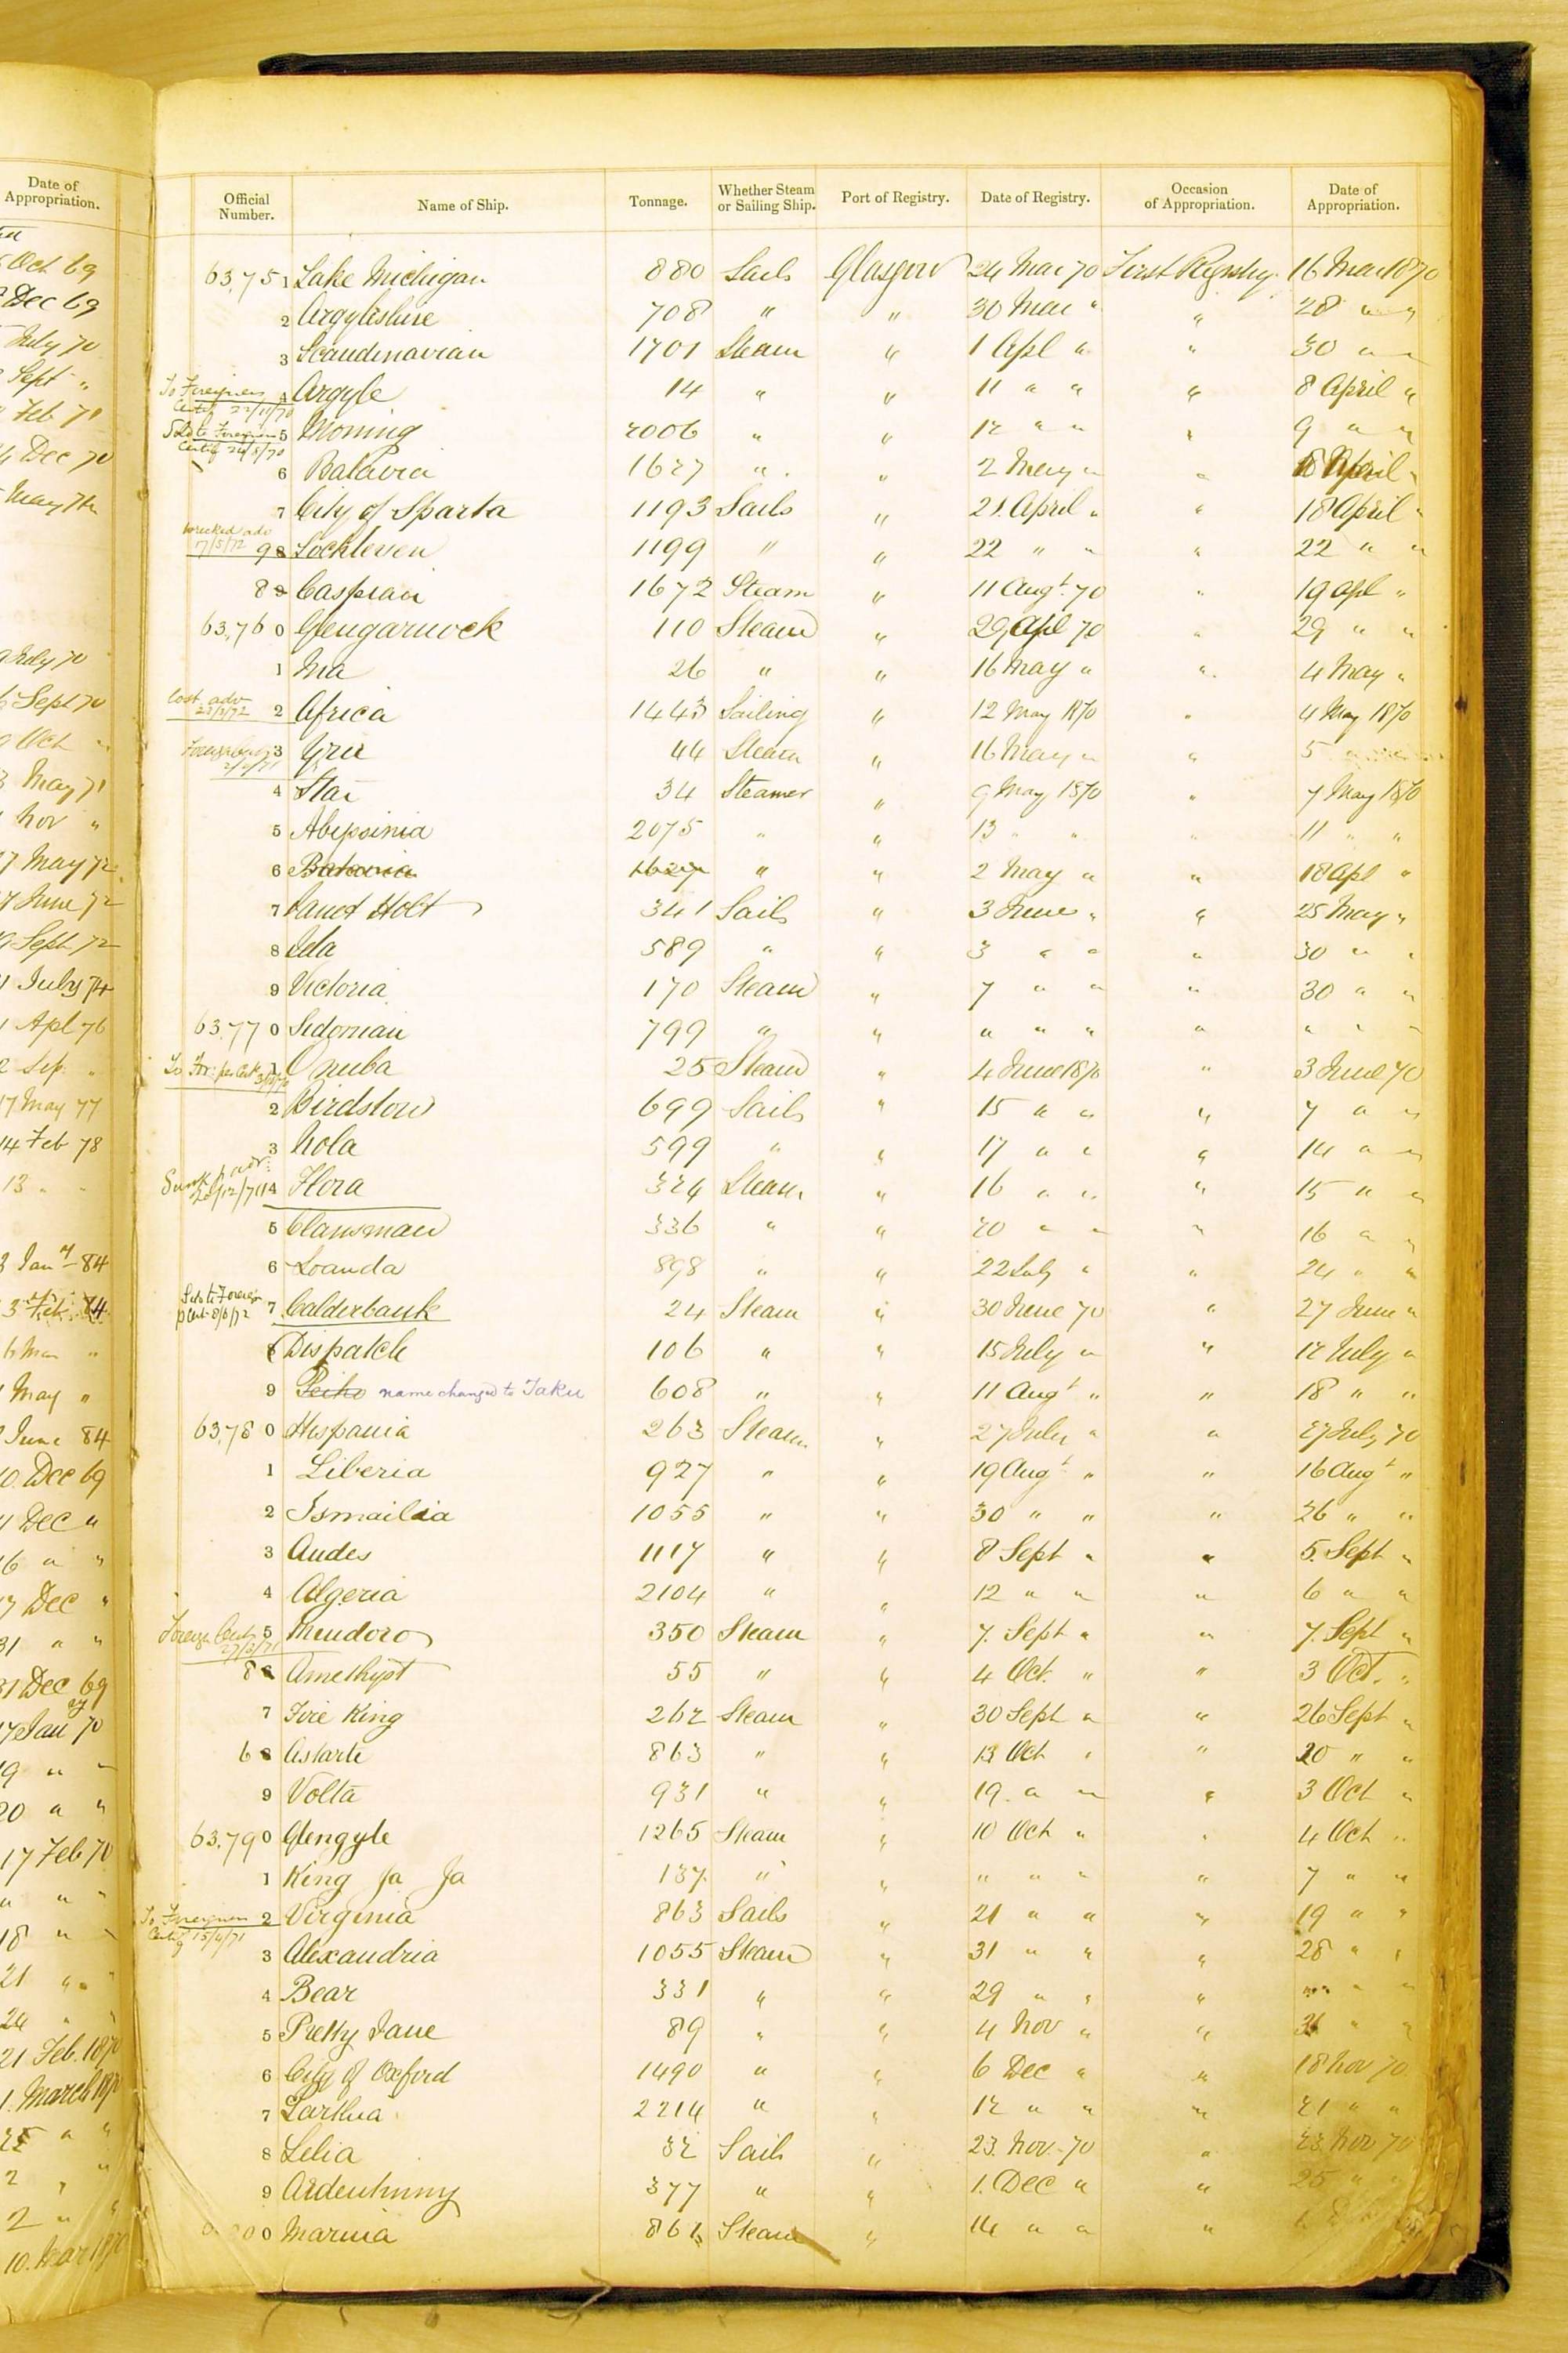 Date of
Appropriation.
Oct 69
Dec 69
July 70
Sept "
Feb 71
Dec 70
May 72
July 70
Sept 70
Oct "
May 71
Nov "
7 May 72
7 June 72
Sept 72
July 74
Apl 76
2 Sep "
17 May 77
14 Feb 78
13 " "
3 Jany 84
3 Feb 84
6 Mar "
May "
June 84
10 Dec 69
Dec "
16 " "
Dec "
31 " "
31 Dec 69
17 Jany 70
19 " "
20 " "
17 Feb 70
" " "
18 " "
21 " "
24 " "
21 Feb. 1870
1. March 1870
25 " "
2 " "
2 " "
10. Mar 1870
Official Number. Name of Ship. Tonnage. Whether Steam or Sailing Ship. Port of Registry. Date of Registry. Occasion of Appropriation. Date of Appropriation.
63,751 Lake Michigan 880 Sails Glasgow 24 Mar 70 First Registry 16 Mar 1870
2 Argyleshire 708 " " 30 Mar " " 28 " "
3 Scandinavian 1701 Steam " 1 Apl " " 30 " "
To Foreigners Certif 22/11/70
4 Argyle 14 " " 11 " " " 8 April "
Sold to Foreigners Certif 24/5/70
5 Morning 2006 " " 12 " " " 9 " "
6 Batavia 1627 " " 2 May " " 18 April "
7 City of Sparta 1193 Sails " 21 April " " 18 April "
Wrecked adv 7/5/72
98 Lochleven 1199 " " 22 " " " 22 " "
89 Caspian 1672 Steam " 11 Augt 70 " 19 Apl "
63,760 Glengarnock 110 Steam " 29 Apl 70 " 29 " "
1 Ina 26 " " 16 May " " 4 May "
Lost adv
2 Africa 1443 Sailing " 12 May 1870 " 4 May 1870
3 44 Steam " 16 May " " 5
4 Star 34 Steamer " 9 May 1870 " 7 May 1870
5 Abyssinia 2075 " " 13 " " " 11 " "
6 Batavia 1627 " " 2 May " " 18 Apl "
7 Janet Holt 341 Sails " 3 June " " 25 May "
8 Ida 589 " " 3 " " " 30 " "
9 Victoria 170 Steam " 7 " " " 30 " "
63,770 Sidonian 799 " " " " " " " " "
To For: per Cert
1 Onuba 25 Steam " 4 June 1870 " 3 June 70
2 Birdstow 699 Sails " 15 " " " 7 " "
3 Nola 599 " " 17 " " " 14 " "
Sunk p adv:
4 Flora 324 Steam " 16 " " " 15 " "
5 Clansman 336 " " 20 " " " 16 " "
6 Loanda 898 " " 22 July " " 24 " "
Sold to Foreign p Cert 8/8/72
7 Calderbank 24 Steam " 30 June 70 " 27 June "
8 Dispatch 106 " " 15 July " " 12 July "
9 Peiho name changed to Taku 608 " " 11 Augt " " 18 " "
63,780 Hispania 263 Steam " 27 July " " 27 July 70
1 Liberia 927 " " 19 Augt " " 16 Augt "
2 Ismailia 1055 " " 30 " " " 26 " "
3 Andes 1117 " " 8 Sept " " 5. Sept "
4 Algeria 2104 " " 12 " " " 6 " "
Foreign Cert
5 Mendoro 350 Steam " 7. Sept " " 7. Sept "
8 Amethyst 55 " " 4 Oct. " " 3 Oct. "
7 Fire King 262 Steam " 30 Sept " " 26 Sept "
68 Astarte 863 " " 13 Oct " " 20 " "
9 Volta 931 " " 19. " " " 3 Oct "
63,790 Glengyle 1265 Steam " 10 Oct " " 4 Oct "
1 King Ja Ja 137 " " " " " " 7 " "
To Foreigners Certif 15/4/71
2 Virginia 863 Sails " 21 " " " 19 " "
3 Alexandria 1055 Steam " 31 " " " 28 " "
4 Bear 331 " " 29 " " " " " "
5 Pretty Jane 89 " " 4 Nov " " 31 " "
6 City of Oxford 1490 " " 6 Dec " " 18 Nov 70
7 Parthia 2214 " " 12 " " " 21 " "
8 Lelia 32 Sails " 23. Nov. 70 " 23 Nov 70
9 Ardentinny 377 " " 1. Dec " " 25 " "
0 Marnia 861 Steam " 14 " " "